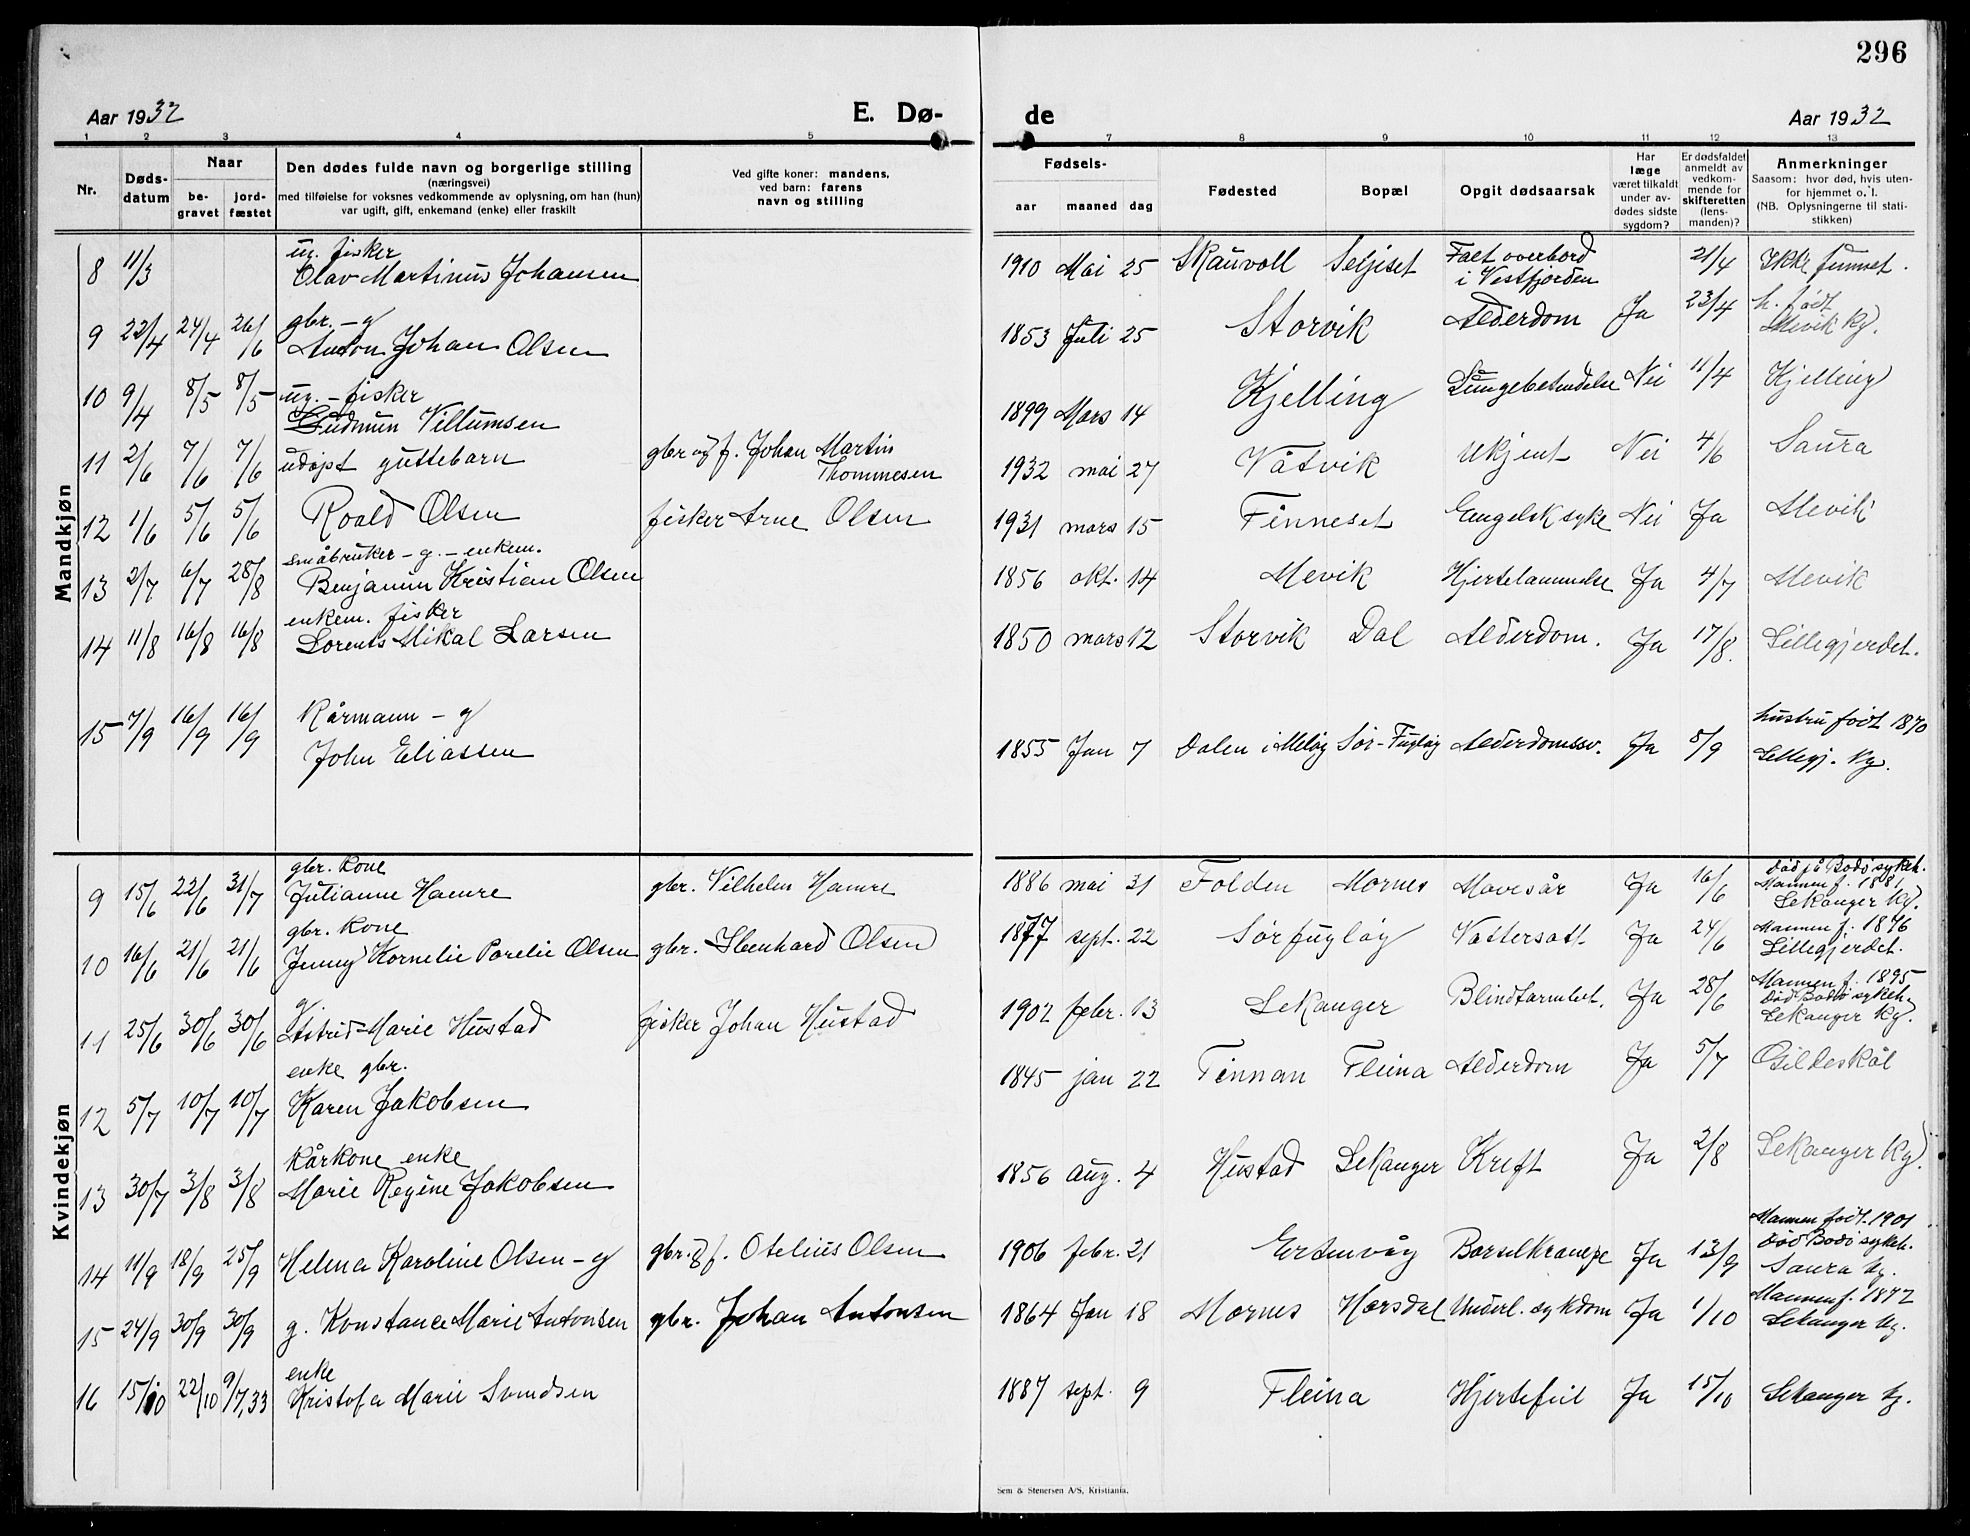 296
Aar 1932 E. Dø- de Aar 1932
1 2 3 4 5 7 8 9 10 11 12 13
Nr.
Døds-
datum
Naar
be-
gravet
jord-
fæstet
Den dødes fulde navn og borgerlige stilling
(næringsvei)
med tilføielse for voksnes vedkommende av oplysning, om han (hun)
var ugift, gift, enkemand (enke) eller fraskilt
Ved gifte koner: mandens,
ved barn: farens
navn og stilling
Fødsels-
aar maaned dag
Fødested
Bopæl
Opgit dødsaarsak
Har
læge
været tilkaldt
under av-
dødes sidste
sygdom?
Er dødsfaldet
anmeldt av
vedkom-
mende for
skifteretten
(lens-
manden)?
Anmerkninger
Saasom: hvor død, hvis uten-
for hjemmet o. l.
(NB. Oplysningerne til stati-
stikken)
Mandkjøn
8 11/3 ug. fisker
Olav Martinus Johansen 1910 Mai 25 Skauvoll Seljeset Falt overbord
i Vestfjorden 21/4 Ikke funnet.
9 22/4 24/4 26/6 gbr. - g
Anton Johan Olsen 1853 Juli 25 Storvik Alderdom Ja 23/4 h. født
Mevik kg.
10 9/4 8/5 8/5 ug. - fisker
Gudmun Villumsen 1899 Mars 14 Kjelling Lungebetendelse Nei 11/4 Kjelling
11 2/6 7/6 7/6 udøpt guttebarn gbr og f. Johan Martin
Thommesen 1932 mai 27 Våtvik Ukjent Nei 4/6 Saura
12 1/6 5/6 5/6 Roald Olsen fisker Arne Olsen 1931 mars 15 Finneset Engelsk syke Nei Ja Mevik
13 2/7 6/7 28/8 småbruker - g. - enkem.
Benjamin Kristian Olsen 1856 okt. 14 Mevik Hjertelammelse Ja 4/7 Mevik
14 11/8 16/8 16/8 enkem. fisker
Lorents Mikal Larsen 1850 mars 12 Storvik Dal Alderdom. Ja 17/8. Lillegjerdet.
15 7/9 16/9 16/9 Kårmann - g
John Eliassen 1855 Jan 7 Dalen i Meløy Sør-Fugløy Alderdomssv. Ja 8/9 hustru født 1870
Lillegj. kg.
Kvindekjøn
9 15/6 22/6 31/7 gbr. kone
Julianne Hamre gbr. Vilhelm Hamre 1886 mai 31 Folden Mornes Mavesår Ja 16/6 Død på Bodø sykeh.
Mannen f. 1881
Lekanger kg.
10 16/6 21/6 21/6 gbr. kone
Jenny Kornelie Parelie Olsen gbr. Ibenhard Olsen 1877 sept. 22 Sørfugløy Vattersott Ja 24/6 Mannen f. 1876
Lillegjerdet.
11 25/6 30/6 30/6 g.
Astrid Marie Hustad fisker Johan Hustad 1902 febr. 13 Lekanger Blindtarmbet. Ja 28/6 Mannen f. 1895
Død Bodø sykeh.
Lekanger kg.
12 5/7 10/7 10/7 enke gbr.
Karen Jakobsen 1845 jan 22 Finnan Fleina Alderdom Ja 5/7 Gildeskål
13 30/7 3/8 3/8 kårkone enke
Marie Regine Jakobsen 1856 aug. 4 Hustad Lekanger Kreft Ja 2/8 Lekanger kg.
14 11/9 18/9 25/9 Helena Karoline Olsen - g gbr. og f. Otelius Olsen 1906 febr. 21 Ertenvåg Barselkrampe Ja 13/9 Mannen født 1901
Død Bodø sykeh.
Saura kg.
15 24/9 30/9 30/9 g. Konstance Marie Antonsen gbr. Johan Antonsen 1864 Jan 18 Mornes Horsdal Underl. sykdom Ja 1/10 Mannen f. 1872
Lekanger kg.
16 15/10 22/10 9/7, 33 enke
Kristofa Marie Svendsen 1887 sept. 9 Fleina Hjertefeil Ja 15/10 Lekanger kg.
Sem & Stenersen A/S, Kristiania.